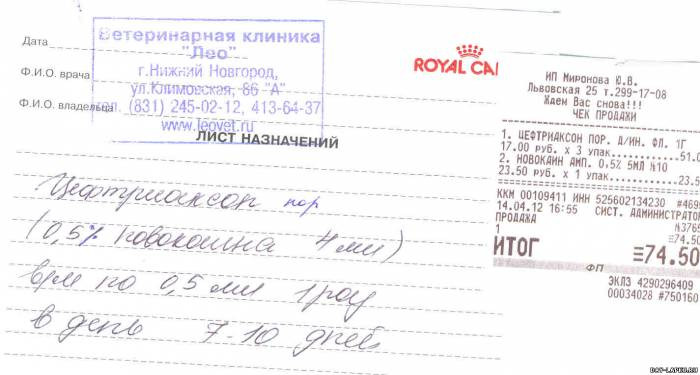 Ветеринарная клиника
"Лео"
г.Нижний Новгород,
ул.Климовская, 86 "А"
тел. (831) 245-02-12, 413-64-37
www.leovet.ru
Дата
Ф.И.О. врача
Ф.И.О. владельца
ЛИСТ НАЗНАЧЕНИЙ
Цефтриаксон пор
(0,5% новокаина 4 мл)
в/м по 0,5 мл 1 раз
в день 7-10 дней
ROYAL CA
ИП Миронова Ю.В.
Львовская 25 т.299-17-08
Ждем Вас снова!!!
ЧЕК ПРОДАЖИ
1. ЦЕФТРИАКСОН ПОР. Д/ИН. ФЛ. 1Г
17.00 руб. x 3 упак.......51.0
2. НОВОКАИН АМП. 0.5% 5МЛ №10
23.50 руб. x 1 упак.......23.5
ККМ 00109411 ИНН 525602134230 #469
14.04.12 16:55 СИСТ. АДМИНИСТРАТО
ПРОДАЖА №3765
1 ≡74.50
ИТОГ ≡74.50
ФП
ЭКЛЗ 4290296409
00034028 #750160
DOY-LAPKU.RU